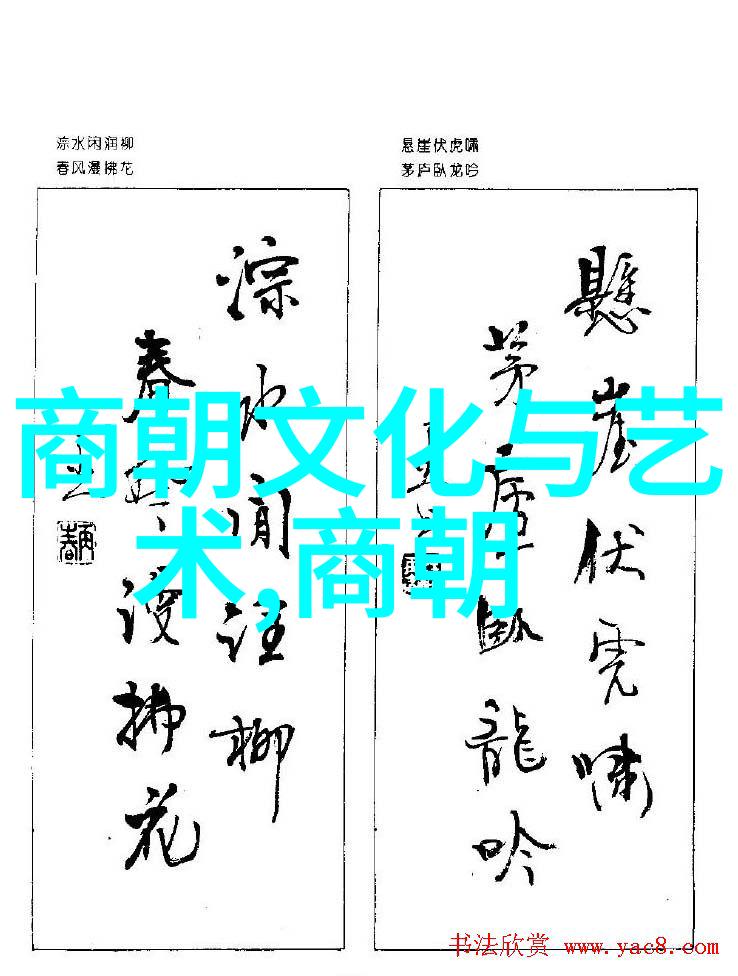 淙水闲润柳
春风漫拂花
悬崖伏虎啸
茅庐卧龙吟
懸崖伏虎嘯
茅庐臥龍吟
淙水闲润柳
春风漫拂花
商朝文化与艺
术,商朝
书法欣赏 www.yac8.com